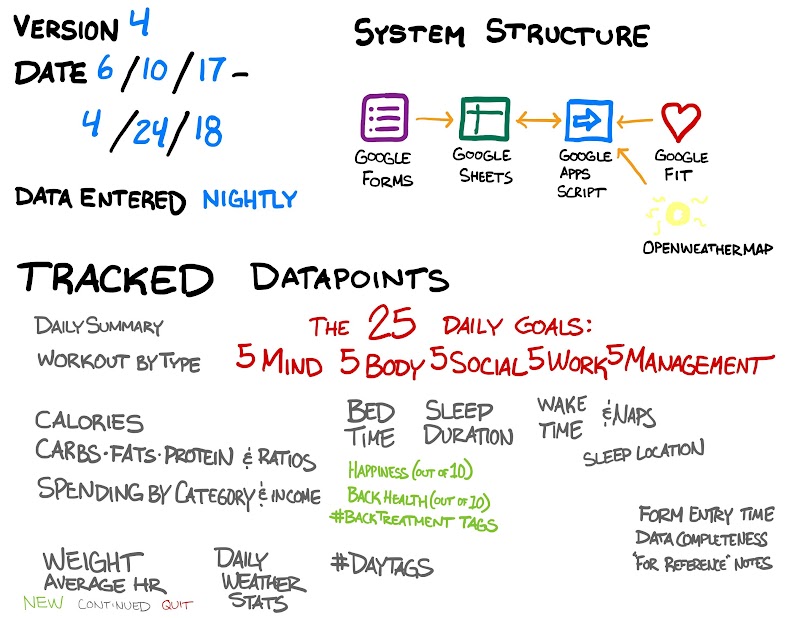 VERSION 4
DATE 6/10/17 -
4/24/18
DATA ENTERED NIGHTLY
SYSTEM STRUCTURE
GOOGLE FORMS
GOOGLE SHEETS
GOOGLE APPS SCRIPT
GOOGLE FIT
OPENWEATHERMAP
TRACKED DATAPOINTS
DAILY SUMMARY
WORKOUT BY TYPE
THE 25 DAILY GOALS:
5 MIND 5 BODY 5 SOCIAL 5 WORK 5 MANAGEMENT
CALORIES
CARBS·FATS·PROTEIN & RATIOS
SPENDING BY CATEGORY & INCOME
BED TIME
SLEEP DURATION
WAKE TIME
& NAPS
SLEEP LOCATION
HAPPINESS (OUT OF 10)
BACK HEALTH (OUT OF 10)
#BACKTREATMENT TAGS
FORM ENTRY TIME
DATA COMPLETENESS
"FOR REFERENCE" NOTES
WEIGHT
AVERAGE HR
DAILY WEATHER STATS
#DAYTAGS
NEW CONTINUED QUIT